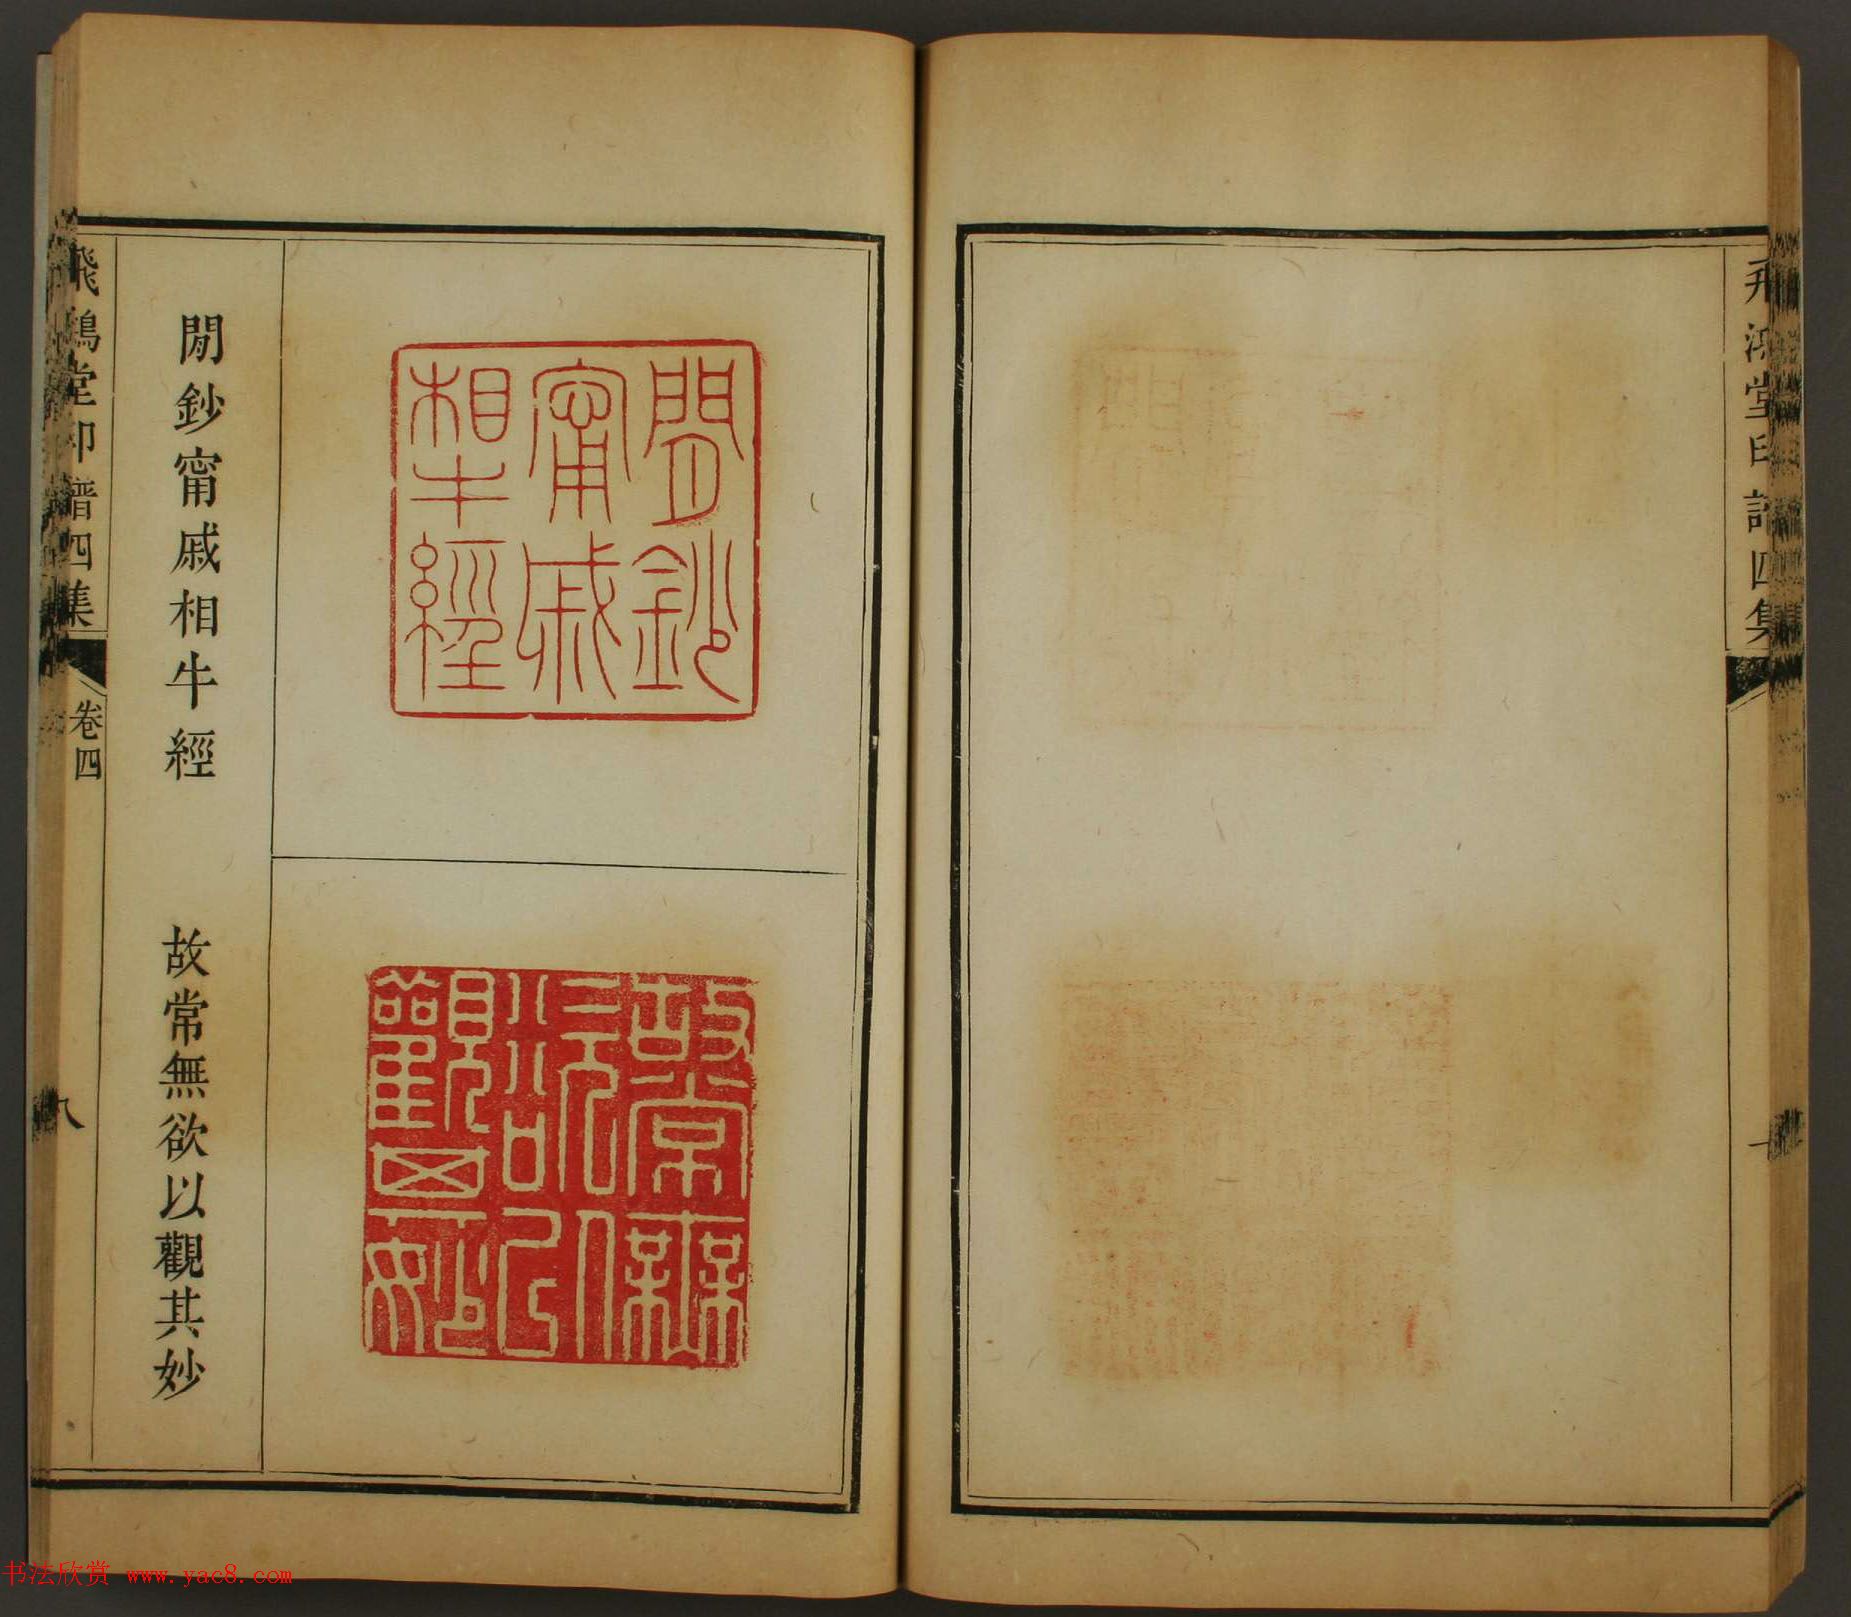 飛鴻堂印譜四集
閒鈔甯戚
相牛經
故常無欲以
觀其妙
閒鈔甯戚相牛經
故常無欲以觀其妙
飛鴻堂印譜四集
卷四
八
书法欣赏 www.yac8.com